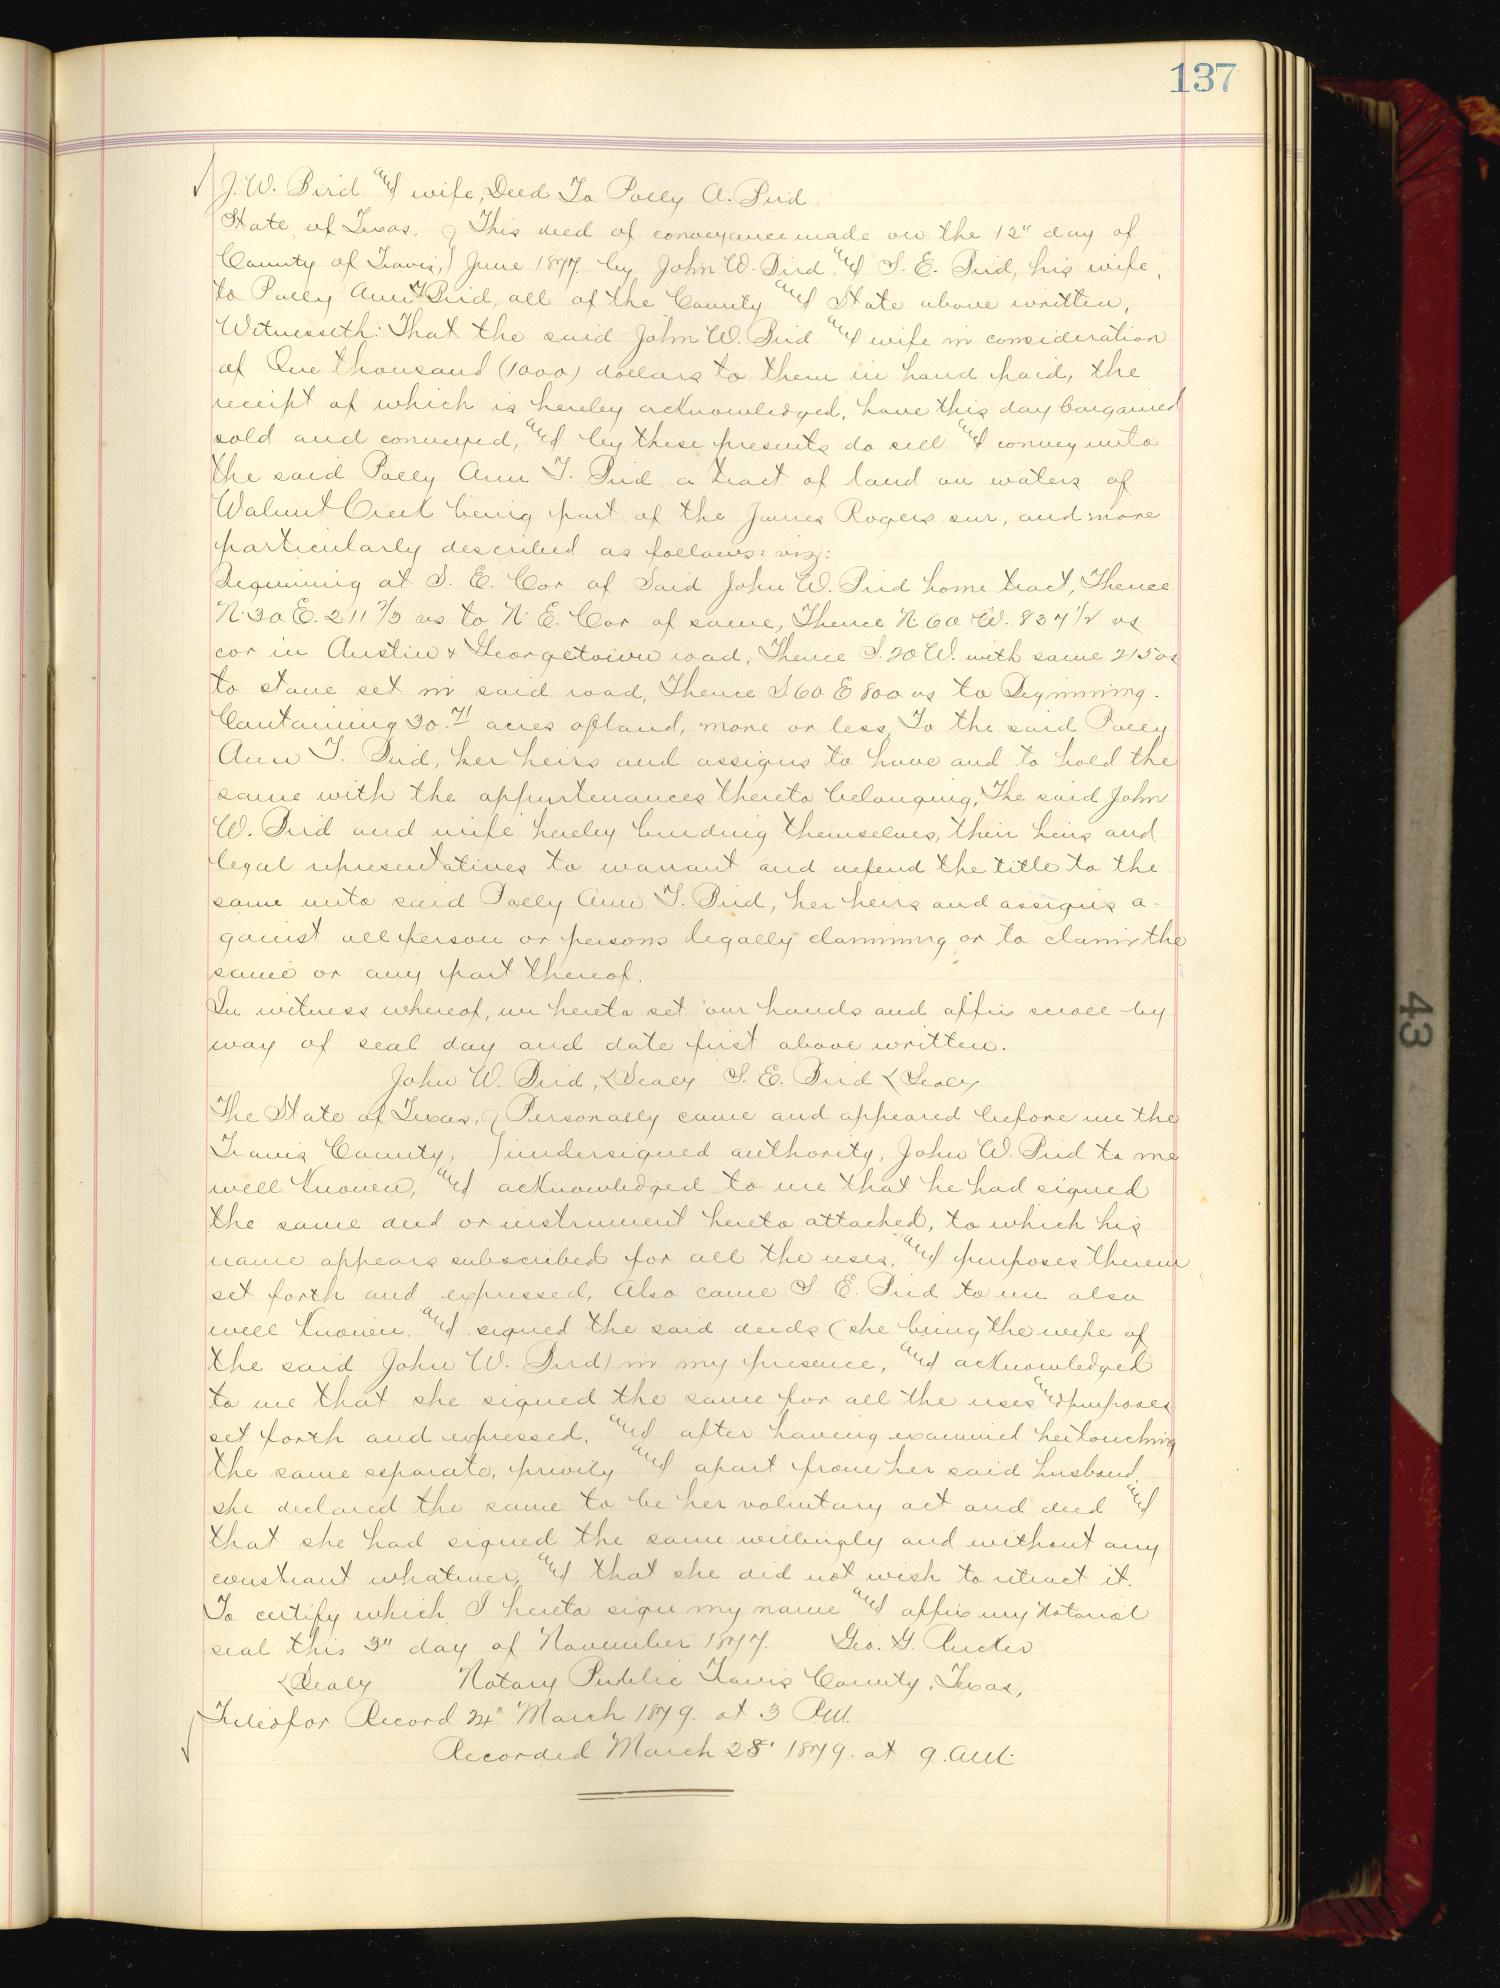 137
J. W. Pird and wife, Deed To Polly A. Pird
State of Texas, } This deed of conveyance made on the 12" day of
County of Travis, } June 1877. by John W. Pird and S. E. Pird, his wife,
to Polly Ann T Pird, all of the County and State above written,
Witnesseth: That the said John W. Pird and wife in consideration
of One thousand (1000) dollars to them in hand paid, the
receipt of which is hereby acknowledged, have this day bargained
sold and conveyed, and by these presents do sell and convey unto
the said Polly Ann T. Pird a tract of land on waters of
Walnut Creek being part of the James Rogers sur, and more
particularly described as follows: viz:
Beginning at S. E. Cor of Said John W. Pird home tract, Thence
N. 30 E. 211 2/3 vs to N. E. Cor of same, Thence N. 60 W. 837 1/2 vs
cor in Austin & Georgetown road, Thence S. 20 W. with same 215 vs
to stone set in said road, Thence S 60 E 800 vs to Beginning.
Containing 30.71 acres of land, more or less, To the said Polly
Ann T. Pird, her heirs and assigns to have and to hold the
same with the appurtenances thereto belonging, The said John
W. Pird and wife hereby binding themselves, their heirs and
legal representatives to warrant and defend the title to the
same unto said Polly Ann T. Pird, her heirs and assigns a-
gainst all person or persons legally claiming or to claim the
same or any part thereof.
In witness whereof, we hereto set our hands and affix scroll by
way of seal day and date first above written.
John W. Pird, <Seal> S. E. Pird <Seal>
The State of Texas, } Personally came and appeared before me the
Travis County, } undersigned authority, John W. Pird to me
well known, and acknowledged to me that he had signed
the same deed or instrument hereto attached, to which his
name appears subscribed for all the uses, and purposes therein
set forth and expressed, Also came S. E. Pird to me also
well known. and signed the said deeds (she being the wife of
the said John W. Pird) in my presence, and acknowledged
to me that she signed the same for all the uses and purposes
set forth and expressed, and after having examined her touching
the same separate, privily and apart from her said husband,
she declared the same to be her voluntary act and deed and
that she had signed the same willingly and without any
constraint whatever, and that she did not wish to retract it.
To certify which I hereto sign my name and affix my Notarial
seal this 3" day of November 1877. Geo. G. Rucker
<Seal> Notary Public Travis County, Texas,
Filed for Record 24" March 1879. at 3 P.M.
Recorded March 28" 1879. at 9. A.M.
43